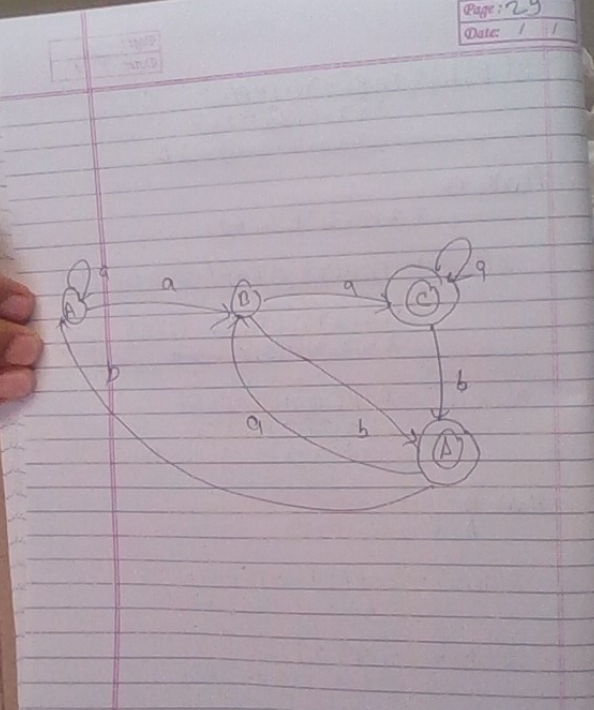 Page: 29
Date: / /
a
A
a
B
a
C
a
b
b
a
b
D